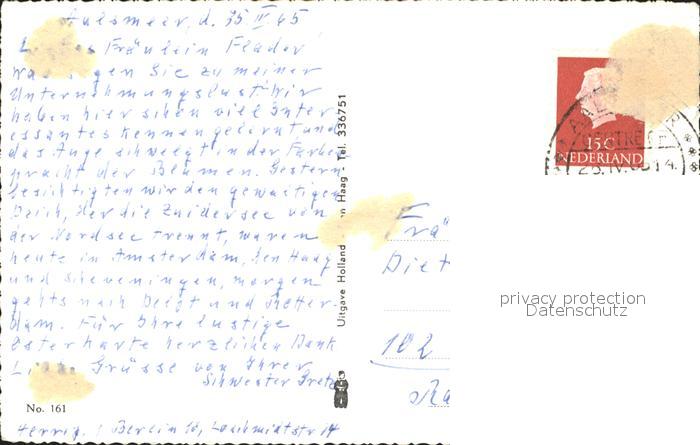 Aalsmeer, d. 25 IV 65
Fräulein Flader
was sagen Sie zu meiner
Unternehmungslust? Wir
haben hier schon viel Inter-
essantes kennen gelernt und
das Auge schwelgt in der Farben
pracht der Blumen. Gestern
besichtigten wir den gewaltigen
Deich, der die Zuidersee von
der Nordsee trennt, waren
heute in Amsterdam, Den Haag
und Scheveningen, morgen
gehts nach Delft und Rotter-
dam. Für Ihre lustige
Osterkarte herzlichen Dank
Grüsse von Ihrer
Schwester Greta
No. 161
Berlin
Uitgave Holland - Haag - Tel. 336751
15 C
NEDERLAND
Frä
Diet
102
privacy protection
Datenschutz